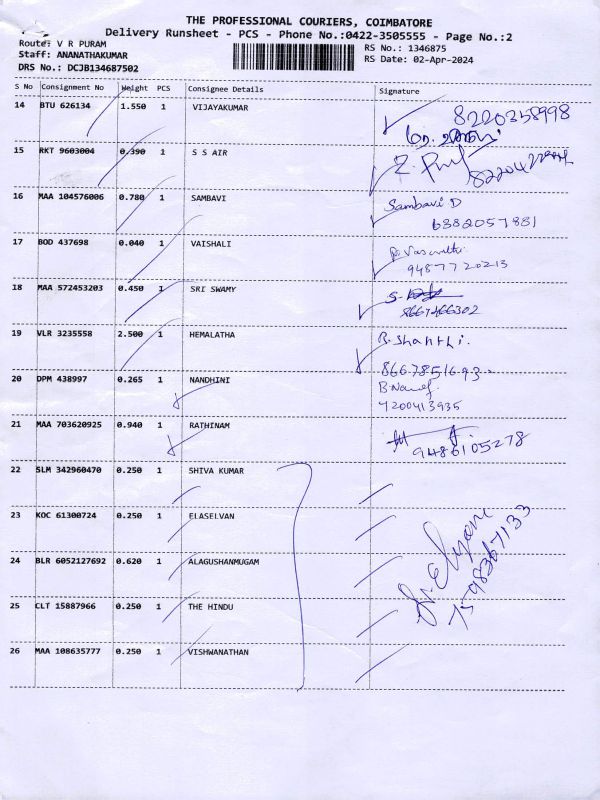 THE PROFESSIONAL COURIERS, COIMBATORE
Delivery Runsheet - PCS - Phone No.:0422-3505555 - Page No.:2
Route: V R PURAM
RS No.: 1346875
Staff: ANANATHAKUMAR
RS Date: 02-Apr-2024
DRS No.: DCJB134687502
S No Consignment No Weight PCS Consignee Details Signature
14 BTU 626134 1.550 1 VIJAYAKUMAR 8220358998
15 RKT 9603004 0.390 1 S S AIR
16 MAA 104576006 0.780 1 SAMBAVI Sambavi D
6382057881
17 BOD 437698 0.040 1 VAISHALI
9487720213
18 MAA 572453203 0.450 1 SRI SWAMY
8667466302
19 VLR 3235558 2.500 1 HEMALATHA B. Shanthi.
8667851693
20 DPM 438997 0.265 1 NANDHINI
7200413935
21 MAA 703620925 0.940 1 RATHINAM
9486105278
22 SLM 342960470 0.250 1 SHIVA KUMAR
23 KOC 61300724 0.250 1 ELASELVAN
24 BLR 6052127692 0.620 1 ALAGUSHANMUGAM
25 CLT 15887966 0.250 1 THE HINDU
26 MAA 108635777 0.250 1 VISHWANATHAN